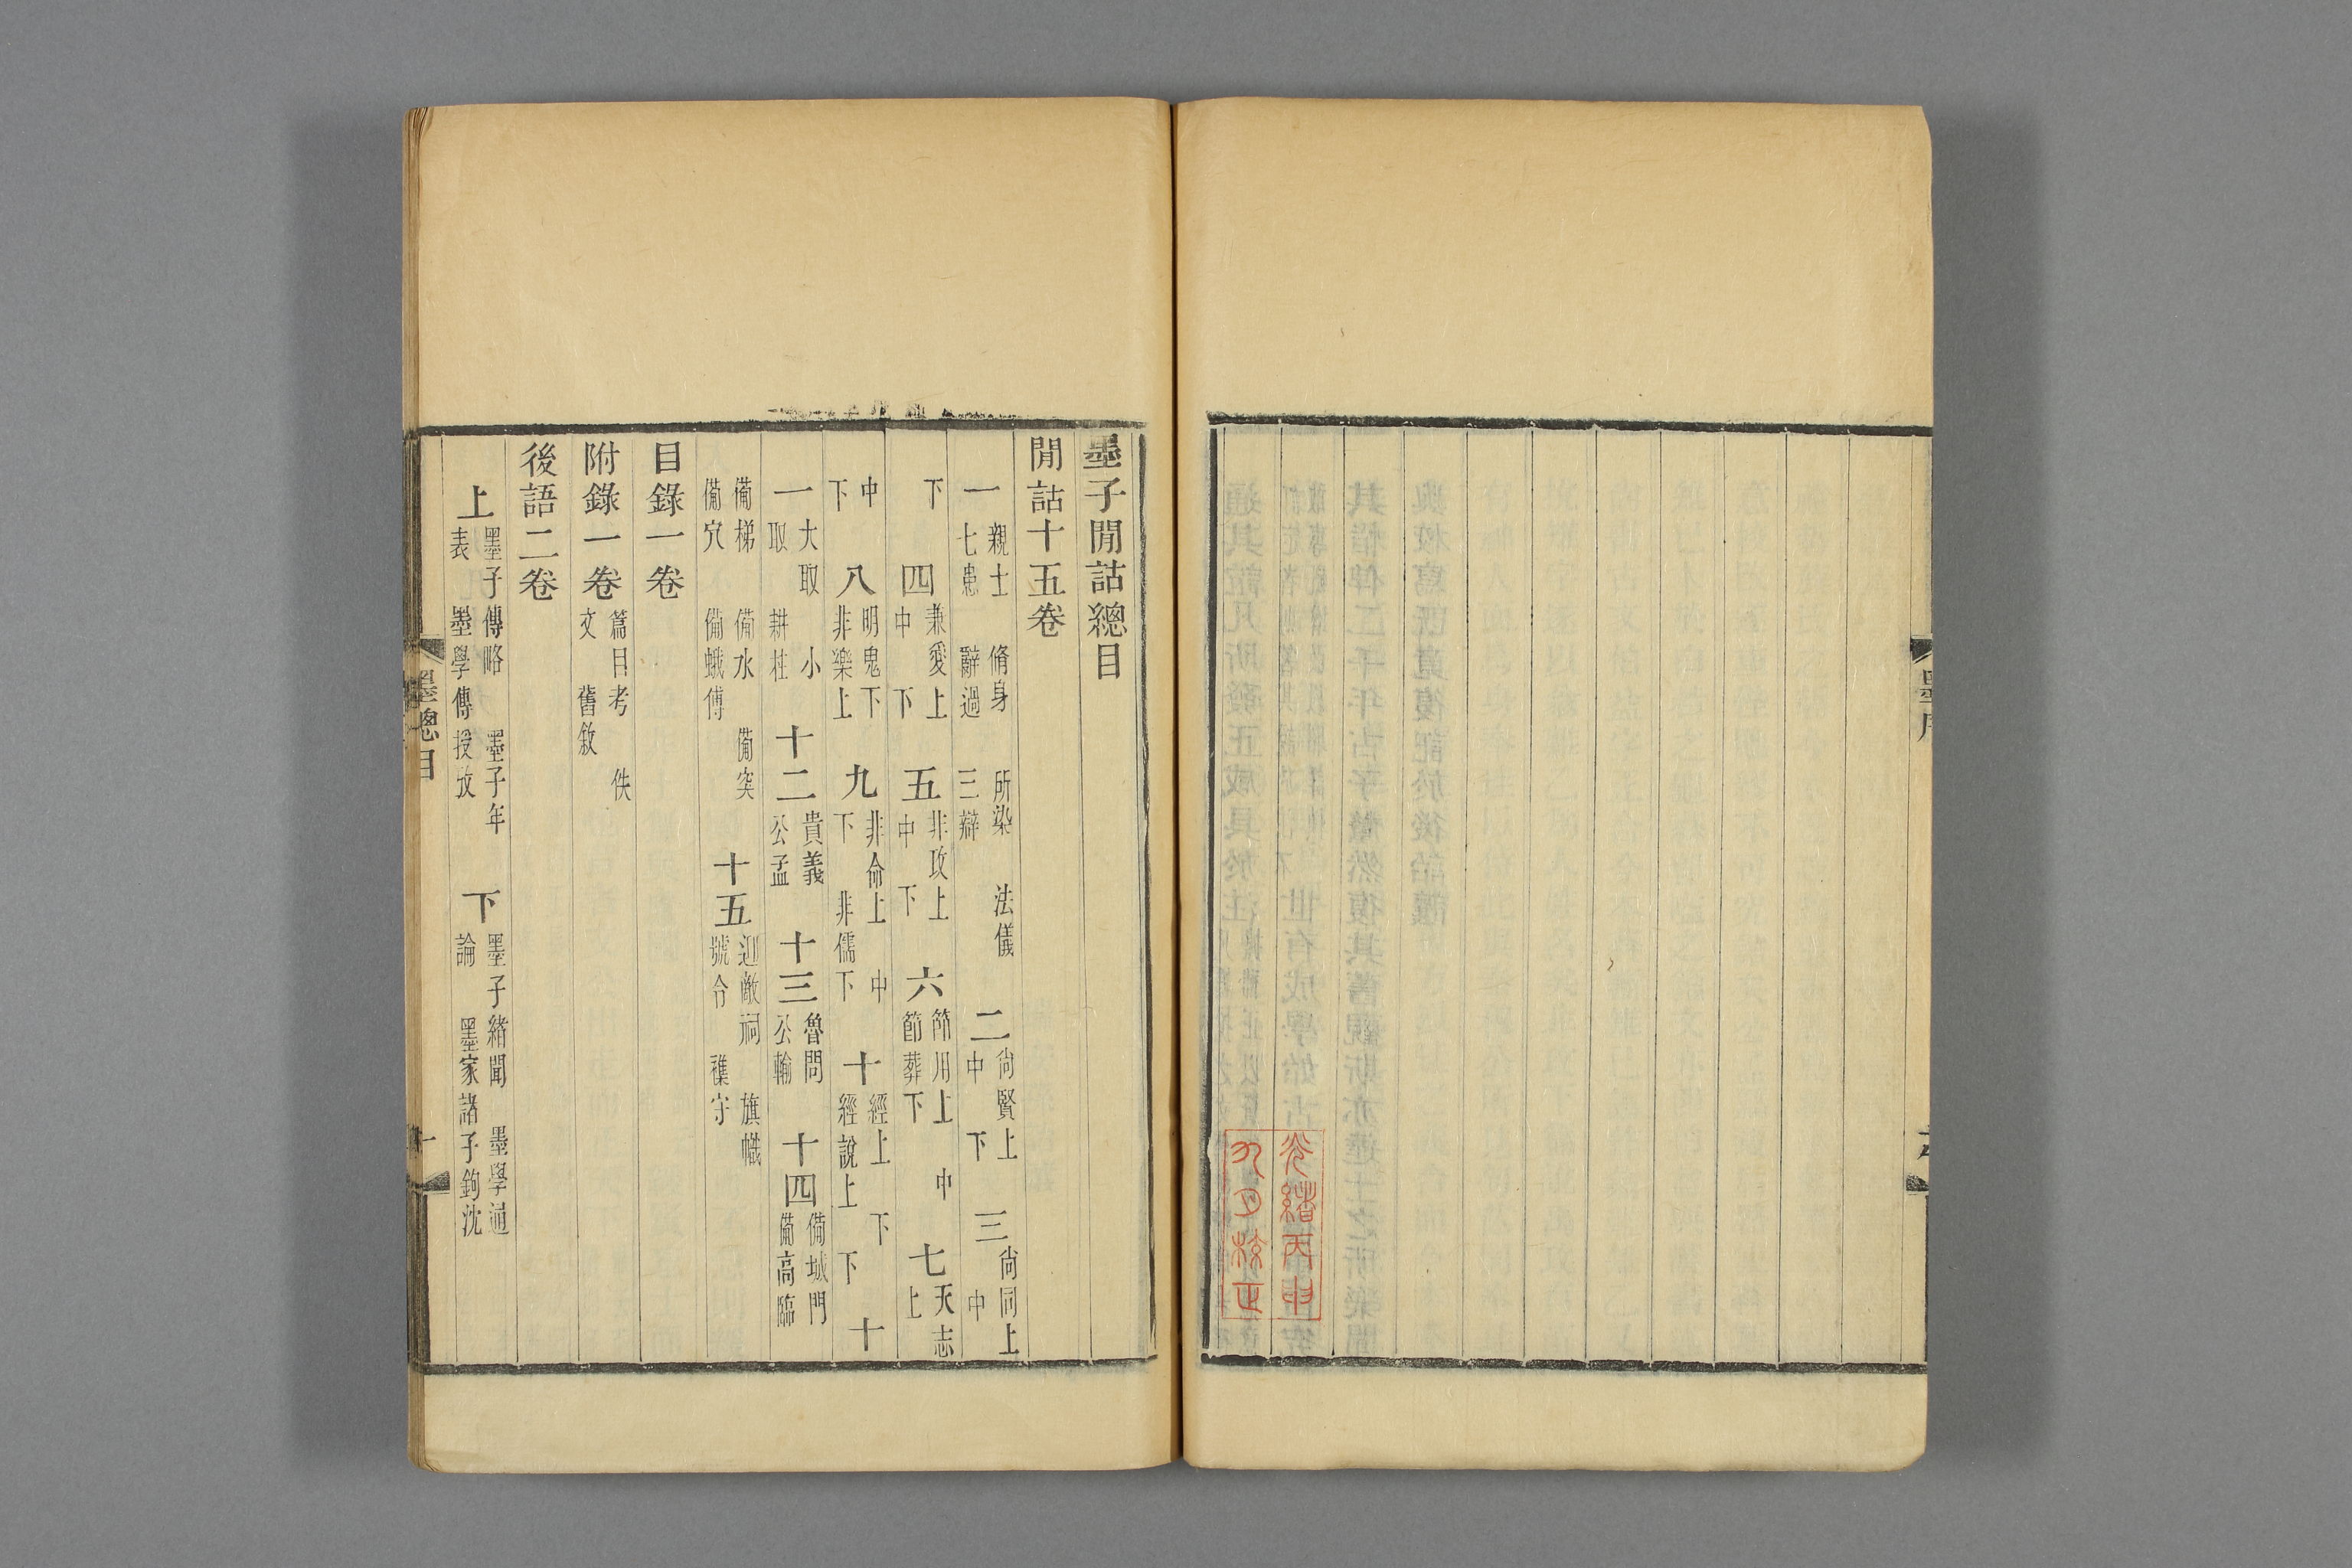 光緒丙申
九月校正
墨子閒詁總目
閒詁十五卷
一 親士 脩身 所染 法儀 七患 辭過 三辯 二 尚賢上 中 下 三 尚同上 中
下 四 兼愛上 中 下 五 非攻上 中 下 六 節用上 中 節葬下 七 天志上
中 下 八 明鬼下 非樂上 九 非命上 中 下 非儒下 十 經上 下 經說上 下 十
一 大取 小取 耕柱 十二 貴義 公孟 十三 魯問 公輸 十四 備城門 備高臨
備梯 備水 備突 備穴 備蛾傅 十五 迎敵祠 旗幟 號令 襍守
目錄一卷
附錄一卷 篇目考 佚文 舊敘
後語二卷
上 墨子傳略 墨子年表 墨學傳授攷 下 墨子緒聞 墨學通論 墨家諸子鉤沈
墨總目 一